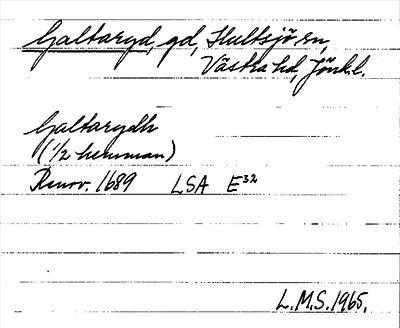 Galtaryd, gd, Hultsjö sn,
Västra hd, Jönk.l.
Galtarydh
(1/2 hemman)
Renov. 1689 LSA E³²
L.M.S. 1965.